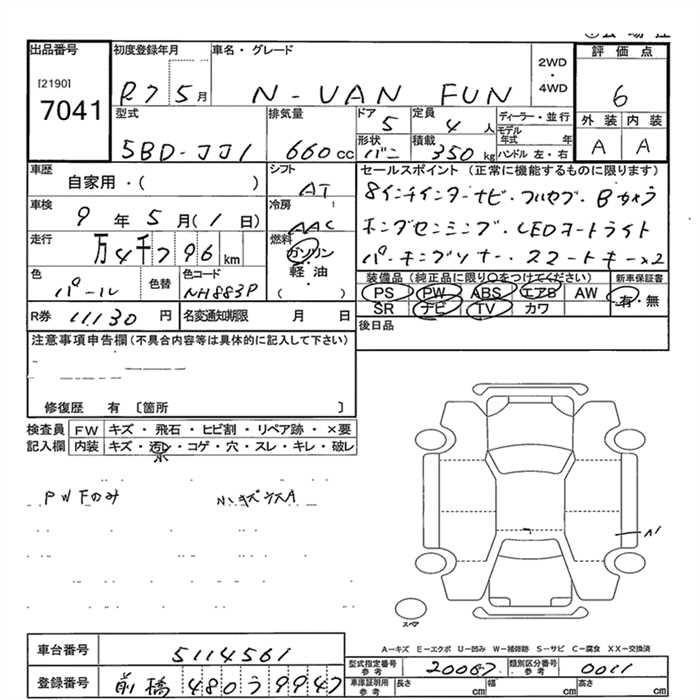 出品番号 初度登録年月 車名・グレード 2WD・4WD 評価点
[2190] 7041 R7 5月 N-VAN FUN 6
型式 排気量 ドア 5 定員 4人 ディーラー・並行 外装 内装
5BD-JJ1 660cc 形状 バン 積載 350kg モデル年式 年 ハンドル 左・右 A A
車歴 自家用・( ) シフト AT セールスポイント (正常に機能するものに限ります)
車検 9年5月(1日) 冷房 AAC 8インチインターナビ・フルセグ・Bカメラ
走行 万4千796km 燃料 ガソリン・軽油・( ) ホンダセンシング・LEDオートライト
パーキングソナー・スマートキー×2
色 パール 色替 色コード NH883P 装備品 (純正品に限り○をつけてください) 新車保証書
PS PW ABS エアB AW 有・無
R券 11,130円 名変通知期限 月 日 SR ナビ TV カワ
注意事項申告欄(不具合内容等は具体的に記入して下さい) 後日品
修復歴 有 [箇所 ]
検査員 FW キズ・飛石・ヒビ割・リペア跡・×要
記入欄 内装 キズ・汚レ・コゲ・穴・スレ・キレ・破レ
PWFのみ ハ・キズウスA
ハ
スペア
A-キズ E-エクボ U-凹み W-補修跡 S-サビ C-腐食 XX-交換済
車台番号 5114561 型式指定番号 参考 20087 類別区分番号 参考 0011
登録番号 前橋 480う9947 車庫証明用 参考 長さ cm 幅 cm 高さ cm